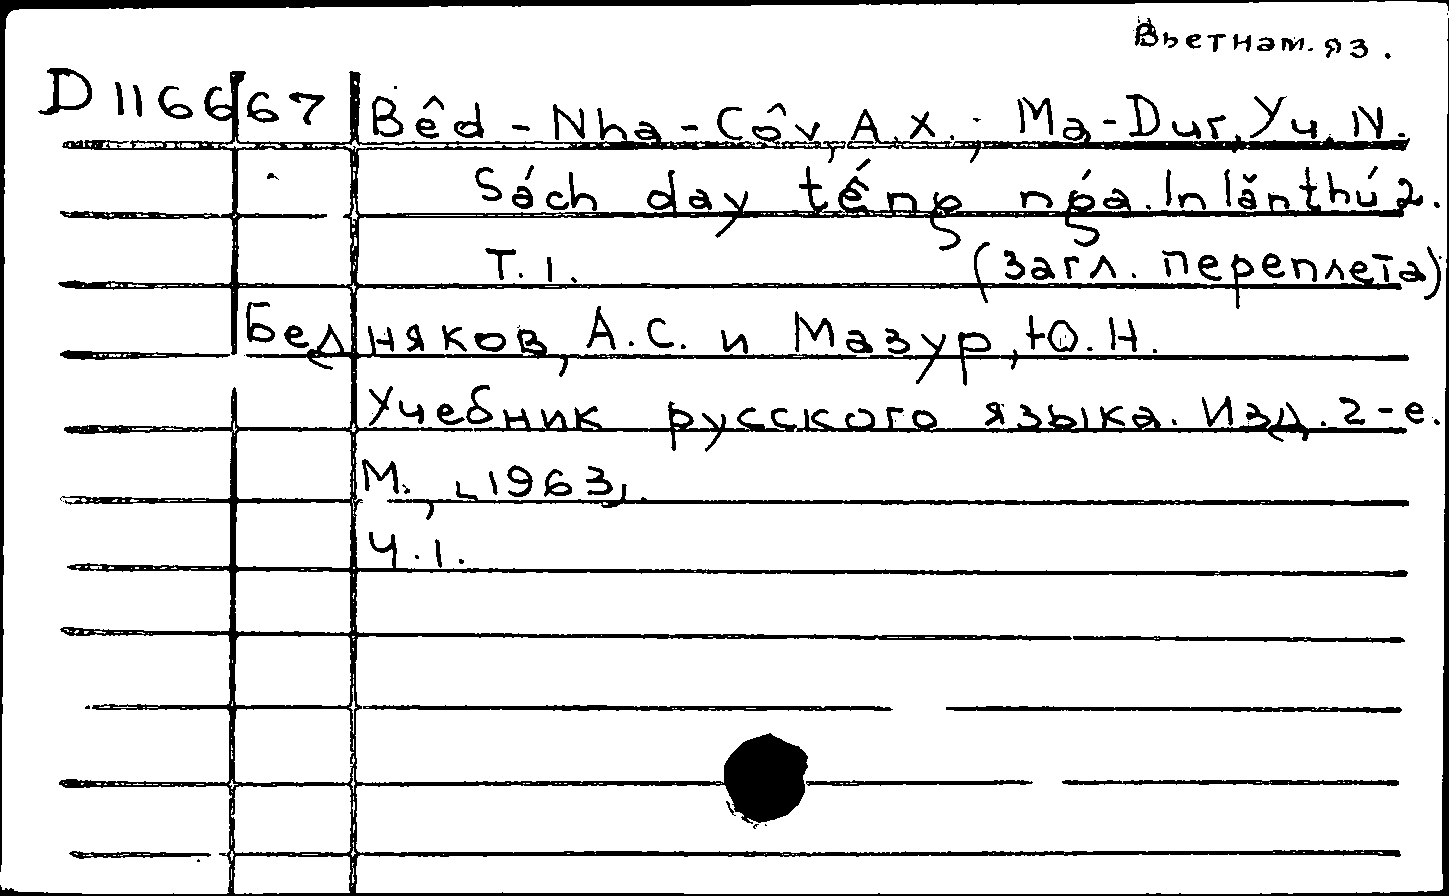 Вьетнам. яз.
D 116667
Bêd-Nha-Côv, A.X.; Ma-Dur, Yu. N.
Sách day téng nga. In lăn thú 2.
T. 1. (загл. переплета)
Бедняков, А.С. и Мазур, Ю.Н.
Учебник русского языка. Изд. 2-е.
М., [1963].
Ч. 1.